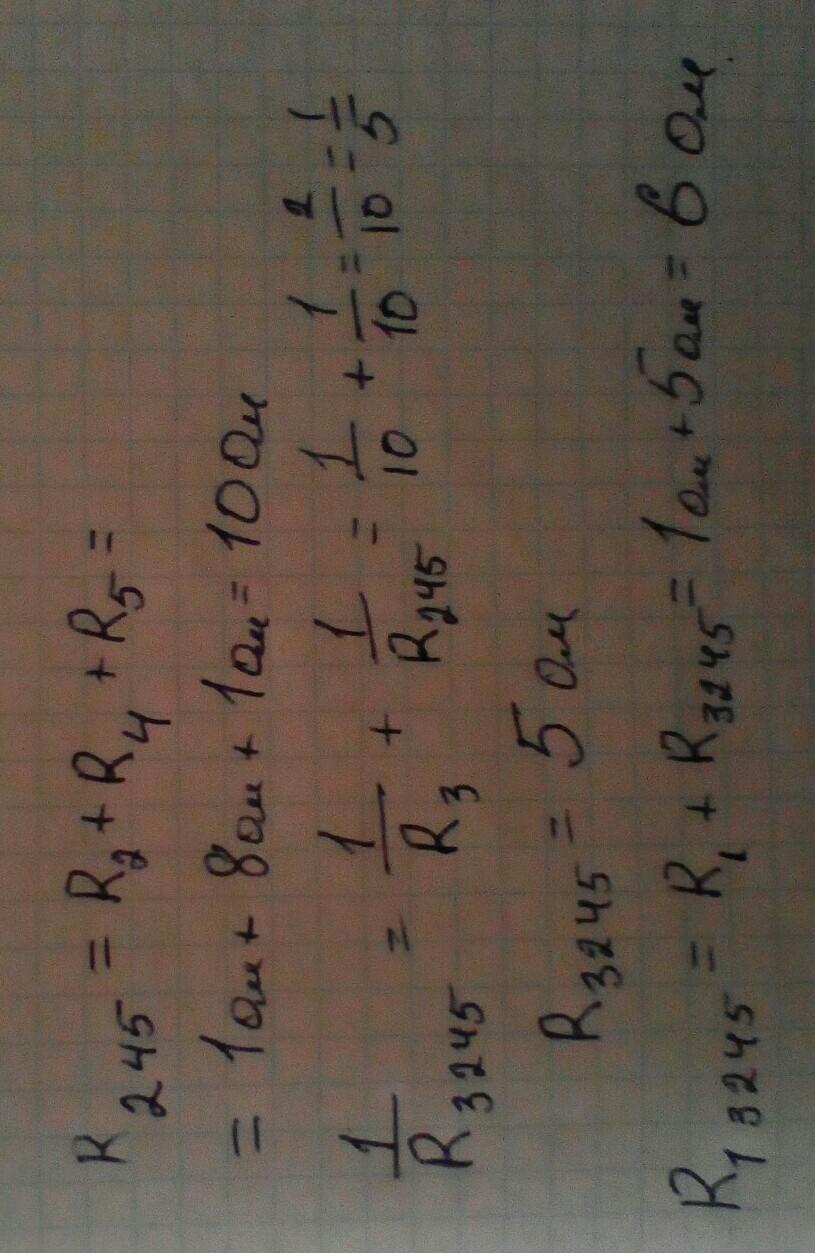 R₂₄₅ = R₂ + R₄ + R₅ =
= 1 Ом + 8 Ом + 1 Ом = 10 Ом
1/R₃₂₄₅ = 1/R₃ + 1/R₂₄₅ = 1/10 + 1/10 = 2/10 = 1/5
R₃₂₄₅ = 5 Ом
R₁₃₂₄₅ = R₁ + R₃₂₄₅ = 1 Ом + 5 Ом = 6 Ом.